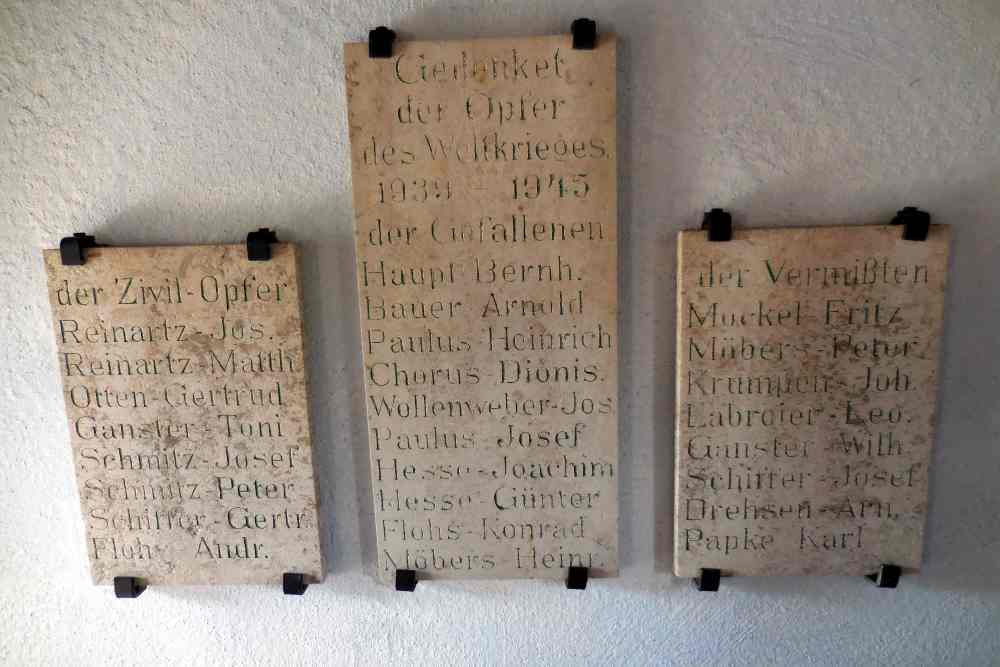 Gedenket
der Opfer
des Weltkrieges.
1939 - 1945
der Gefallenen
Haupt-Bernh.
Bauer Arnold
Paulus-Heinrich
Chorus-Dionis.
Wollenweber-Jos
Paulus-Josef
Hesse-Joachim
Hesse-Günter
Flohs-Konrad
Möbers-Heinr.
der Zivil-Opfer
Reinartz-Jos.
Reinartz-Matth
Otten-Gertrud
Ganster-Toni
Schmitz-Josef
Schmitz-Peter
Schiffer-Gertr.
Flohs Andr.
der Vermißten
Mockel-Fritz
Möbers-Peter.
Krumpen-Joh.
Labroier-Leo.
Ganster-Wilh.
Schiffer-Josef
Drehsen-Arn.
Papke Karl